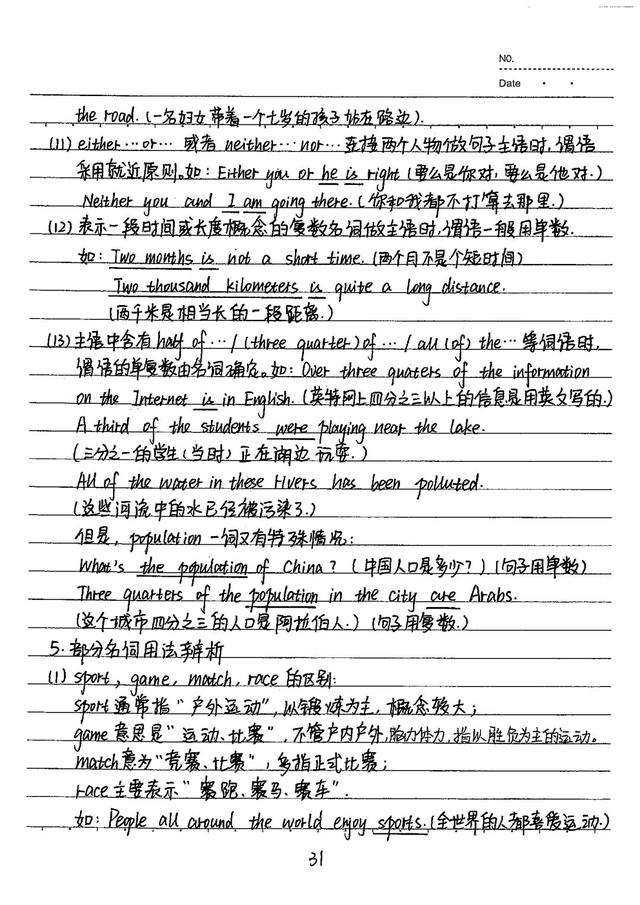 NO.
Date
the road.(一名妇女带着一个七岁的孩子站在路边).
(11) either…or… 或者 neither…nor… 连接两个人物做句子主语时,谓语
采用就近原则。如: Either you or he is right (要么是你对,要么是他对.)
Neither you and I am going there.(你和我都不打算去那里.)
(12) 表示一段时间或长度概念的复数名词做主语时,谓语一般用单数.
如: Two months is not a short time. (两个月不是个短时间)
Two thousand kilometers is quite a long distance.
(两千米是相当长的一段距离.)
(13) 主语中含有 half of … / (three quarter) of … / all (of) the… 等词语时,
谓语的单复数由名词确定。如: Over three quaters of the information
on the Internet is in English. (英特网上四分之三以上的信息是用英文写的.)
A third of the students were playing near the lake.
(三分之一的学生(当时)正在湖边玩耍.)
All of the water in these rivers has been polluted.
(这些河流中的水已经被污染了.)
但是, population 一词又有特殊情况:
What's the population of China? (中国人口是多少?) (句子用单数)
Three quarters of the population in the city are Arabs.
(这个城市四分之三的人口是阿拉伯人.) (句子用复数.)
5. 部分名词用法辨析
(1) sport, game, match, race 的区别:
sport 通常指"户外运动", 以锻炼为主, 概念较大;
game 意思是"运动、比赛", 不管户内户外,脑力体力,指以胜负为主的运动。
match 意为"竞赛、比赛", 多指正式比赛;
race 主要表示"赛跑、赛马、赛车".
如: People all around the world enjoy sports.(全世界的人都喜爱运动.)
31